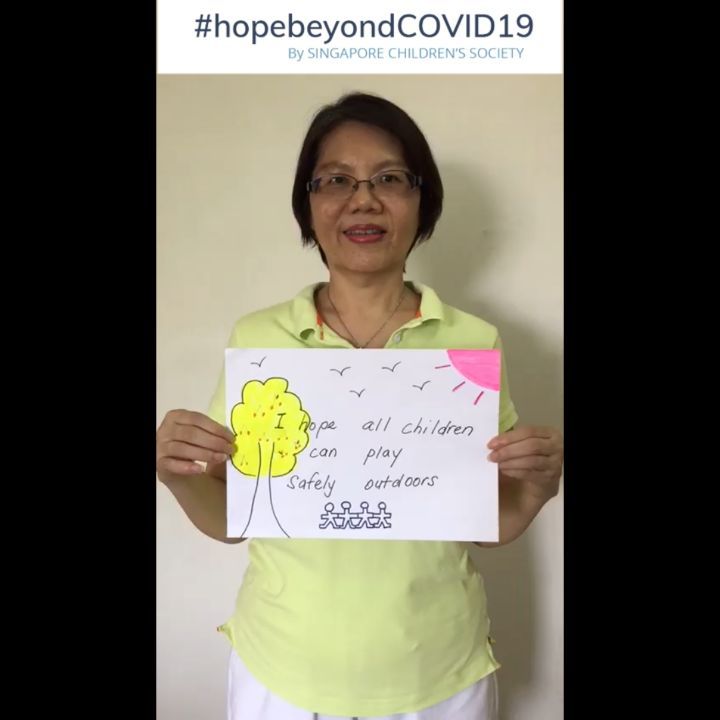 #hopebeyondCOVID19
By SINGAPORE CHILDREN'S SOCIETY
I hope all children
can play
safely outdoors